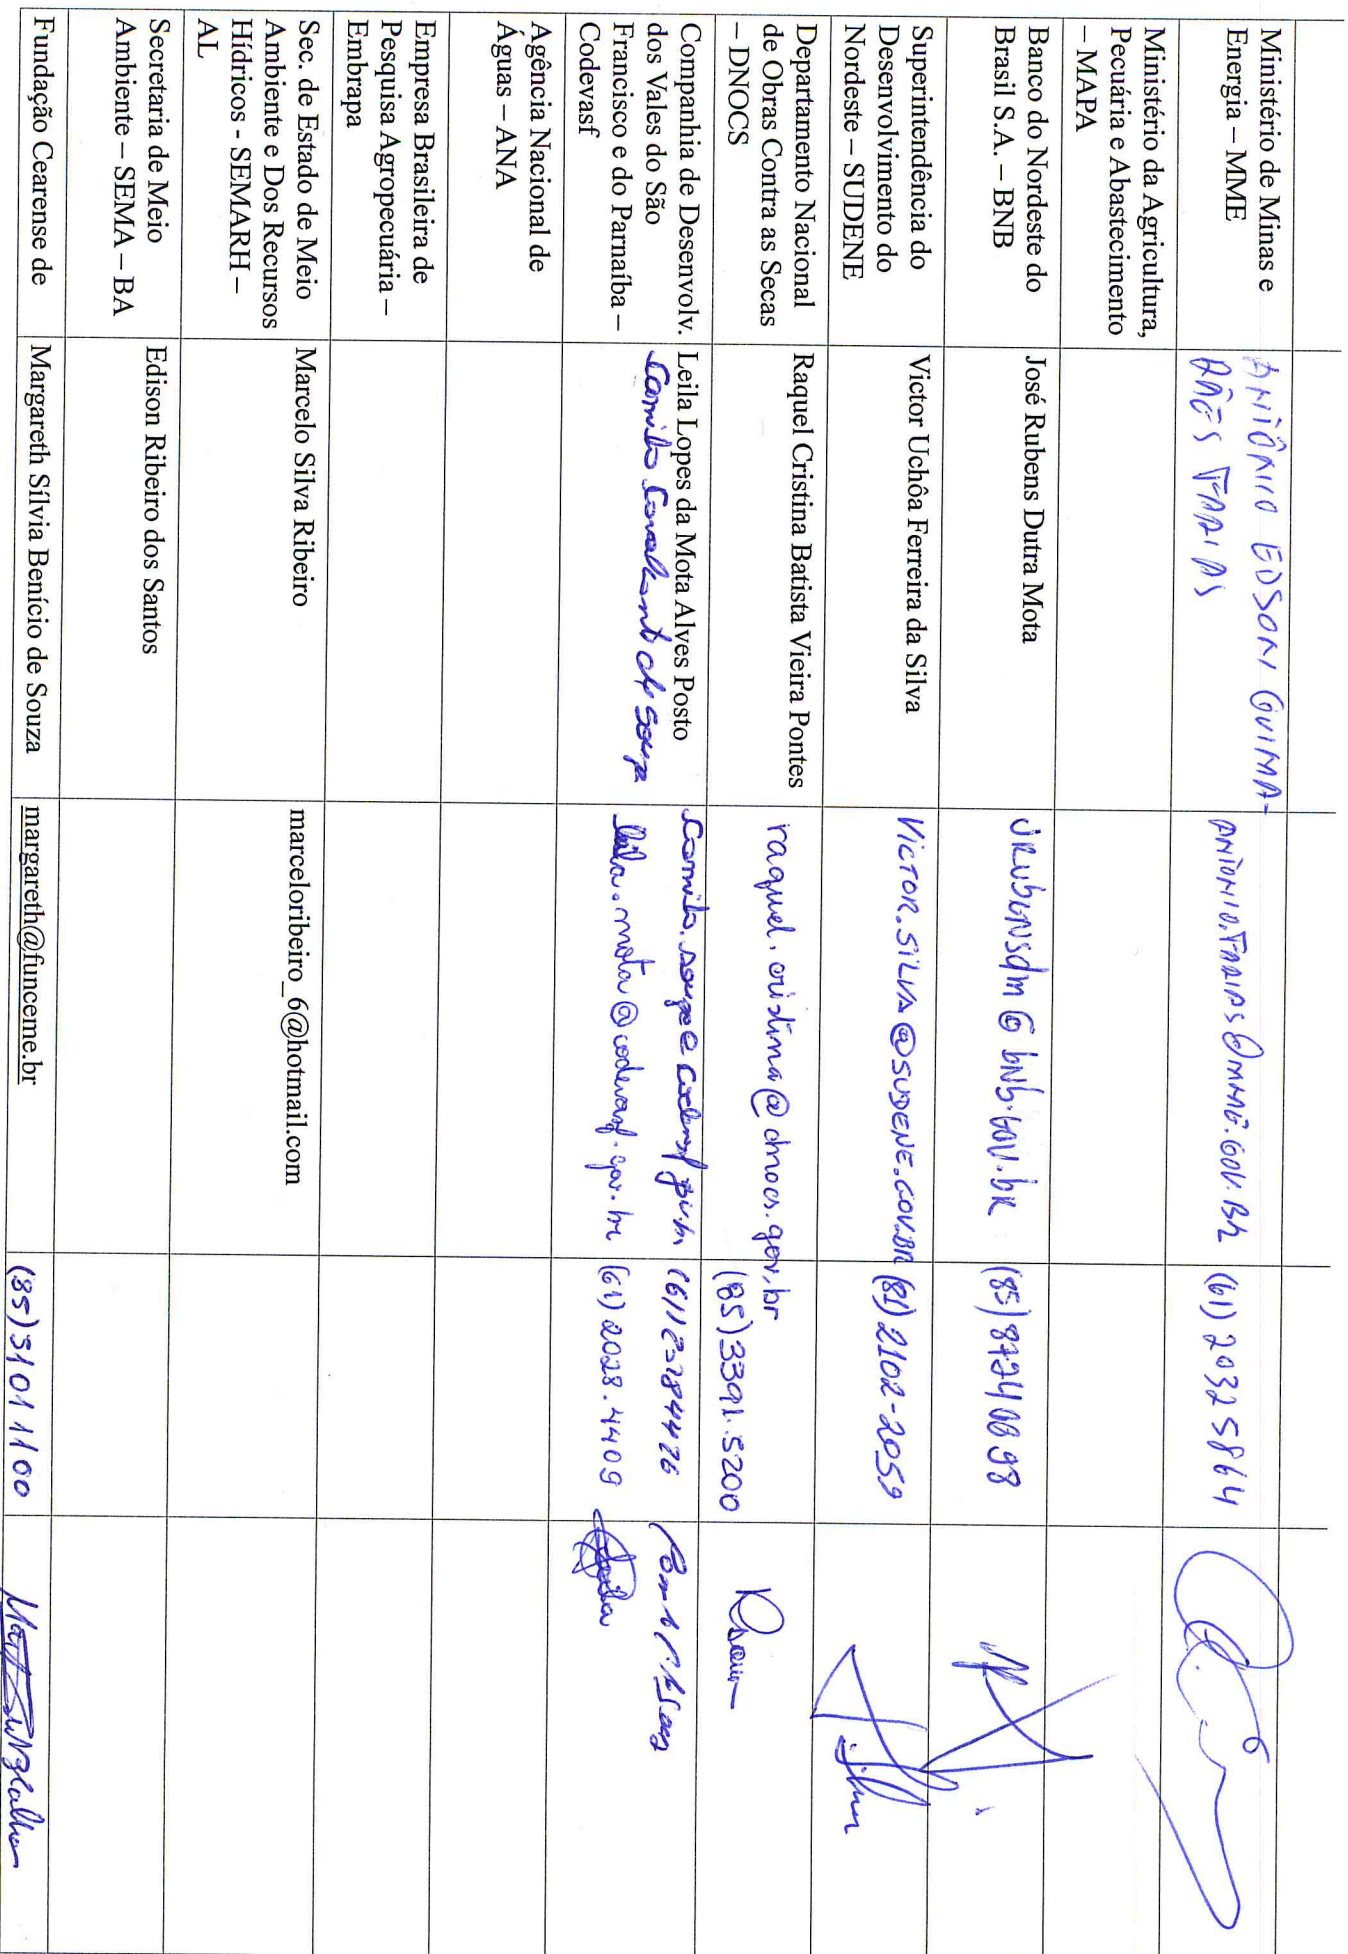 Ministério de Minas e
Energia – MME
ANTÔNIO EDSON GUIMA-
RÃES FARIAS
ANTONIO.FARIAS@MME.GOV.BR
(61) 2032 5864
Ministério da Agricultura,
Pecuária e Abastecimento
– MAPA
Banco do Nordeste do
Brasil S.A. – BNB
José Rubens Dutra Mota
JRubensdm@bnb.gov.br
Superintendência do
Desenvolvimento do
Nordeste – SUDENE
Victor Uchôa Ferreira da Silva
VICTOR.SILVA@SUDENE.GOV.BR
(81) 2102-2059
Departamento Nacional
de Obras Contra as Secas
– DNOCS
Raquel Cristina Batista Vieira Pontes
raquel.cristina@dnocs.gov.br
(85)3391.5200
Companhia de Desenvolv.
dos Vales do São
Francisco e do Parnaíba –
Codevasf
Leila Lopes da Mota Alves Posto
Camilo Cavalcante de Souza
leila.mota@codevasf.gov.br
(61) 2028.4409
Agência Nacional de
Águas – ANA
Empresa Brasileira de
Pesquisa Agropecuária –
Embrapa
Sec. de Estado de Meio
Ambiente e Dos Recursos
Hídricos - SEMARH –
AL
Marcelo Silva Ribeiro
marceloribeiro_6@hotmail.com
Secretaria de Meio
Ambiente – SEMA – BA
Edison Ribeiro dos Santos
Fundação Cearense de
Margareth Sílvia Benício de Souza
margareth@funceme.br
(85)3101 1100